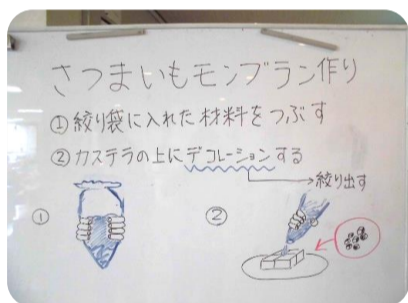 さつまいもモンブラン作り
①絞り袋に入れた材料をつぶす
②カステラの上にデコレーションする
→絞り出す
①
②